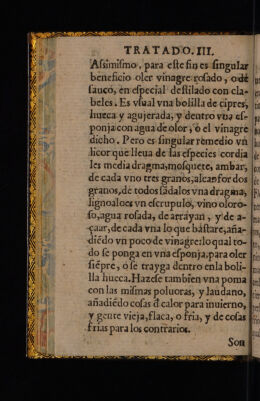 TRATADO. III.
Assimismo, para este fin es singular
beneficio oler vinagre rosado, o de
sauco, en especial destilado con cla-
beles. Es vsual vna bolilla de cipres,
hueca y agujerada, y dentro vna es-
ponja con agua de olor, ò el vinagre
dicho. Pero es singular remedio vn
licor que lleua de las especies cordia
les media dragma, mosquete, ambar,
de cada vno tres granos, alcanfor dos
granos, de todos sãdalos vna dragma,
lignoaloes vn escrupulo, vino oloro-
so, agua rosada, de arrayan, y de a-
çaar, de cada vna lo que bastare, aña-
diẽdo vn poco de vinagre: lo qual to-
do se ponga en vna esponja, para oler
siẽpre, o se trayga dentro en la boli-
lla hueca. Hazese tambien vna poma
con las mismas poluoras, y laudano,
añadiẽdo cosas đ calor para inuierno,
y gente vieja, flaca, o fria, y de cosas
frias para los contrarios.
Son